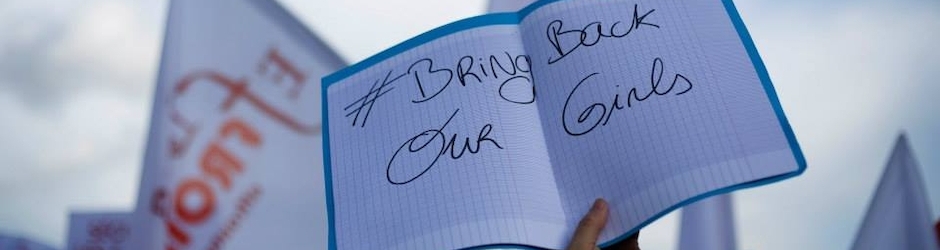 #BRiNg Back
OUR Girls